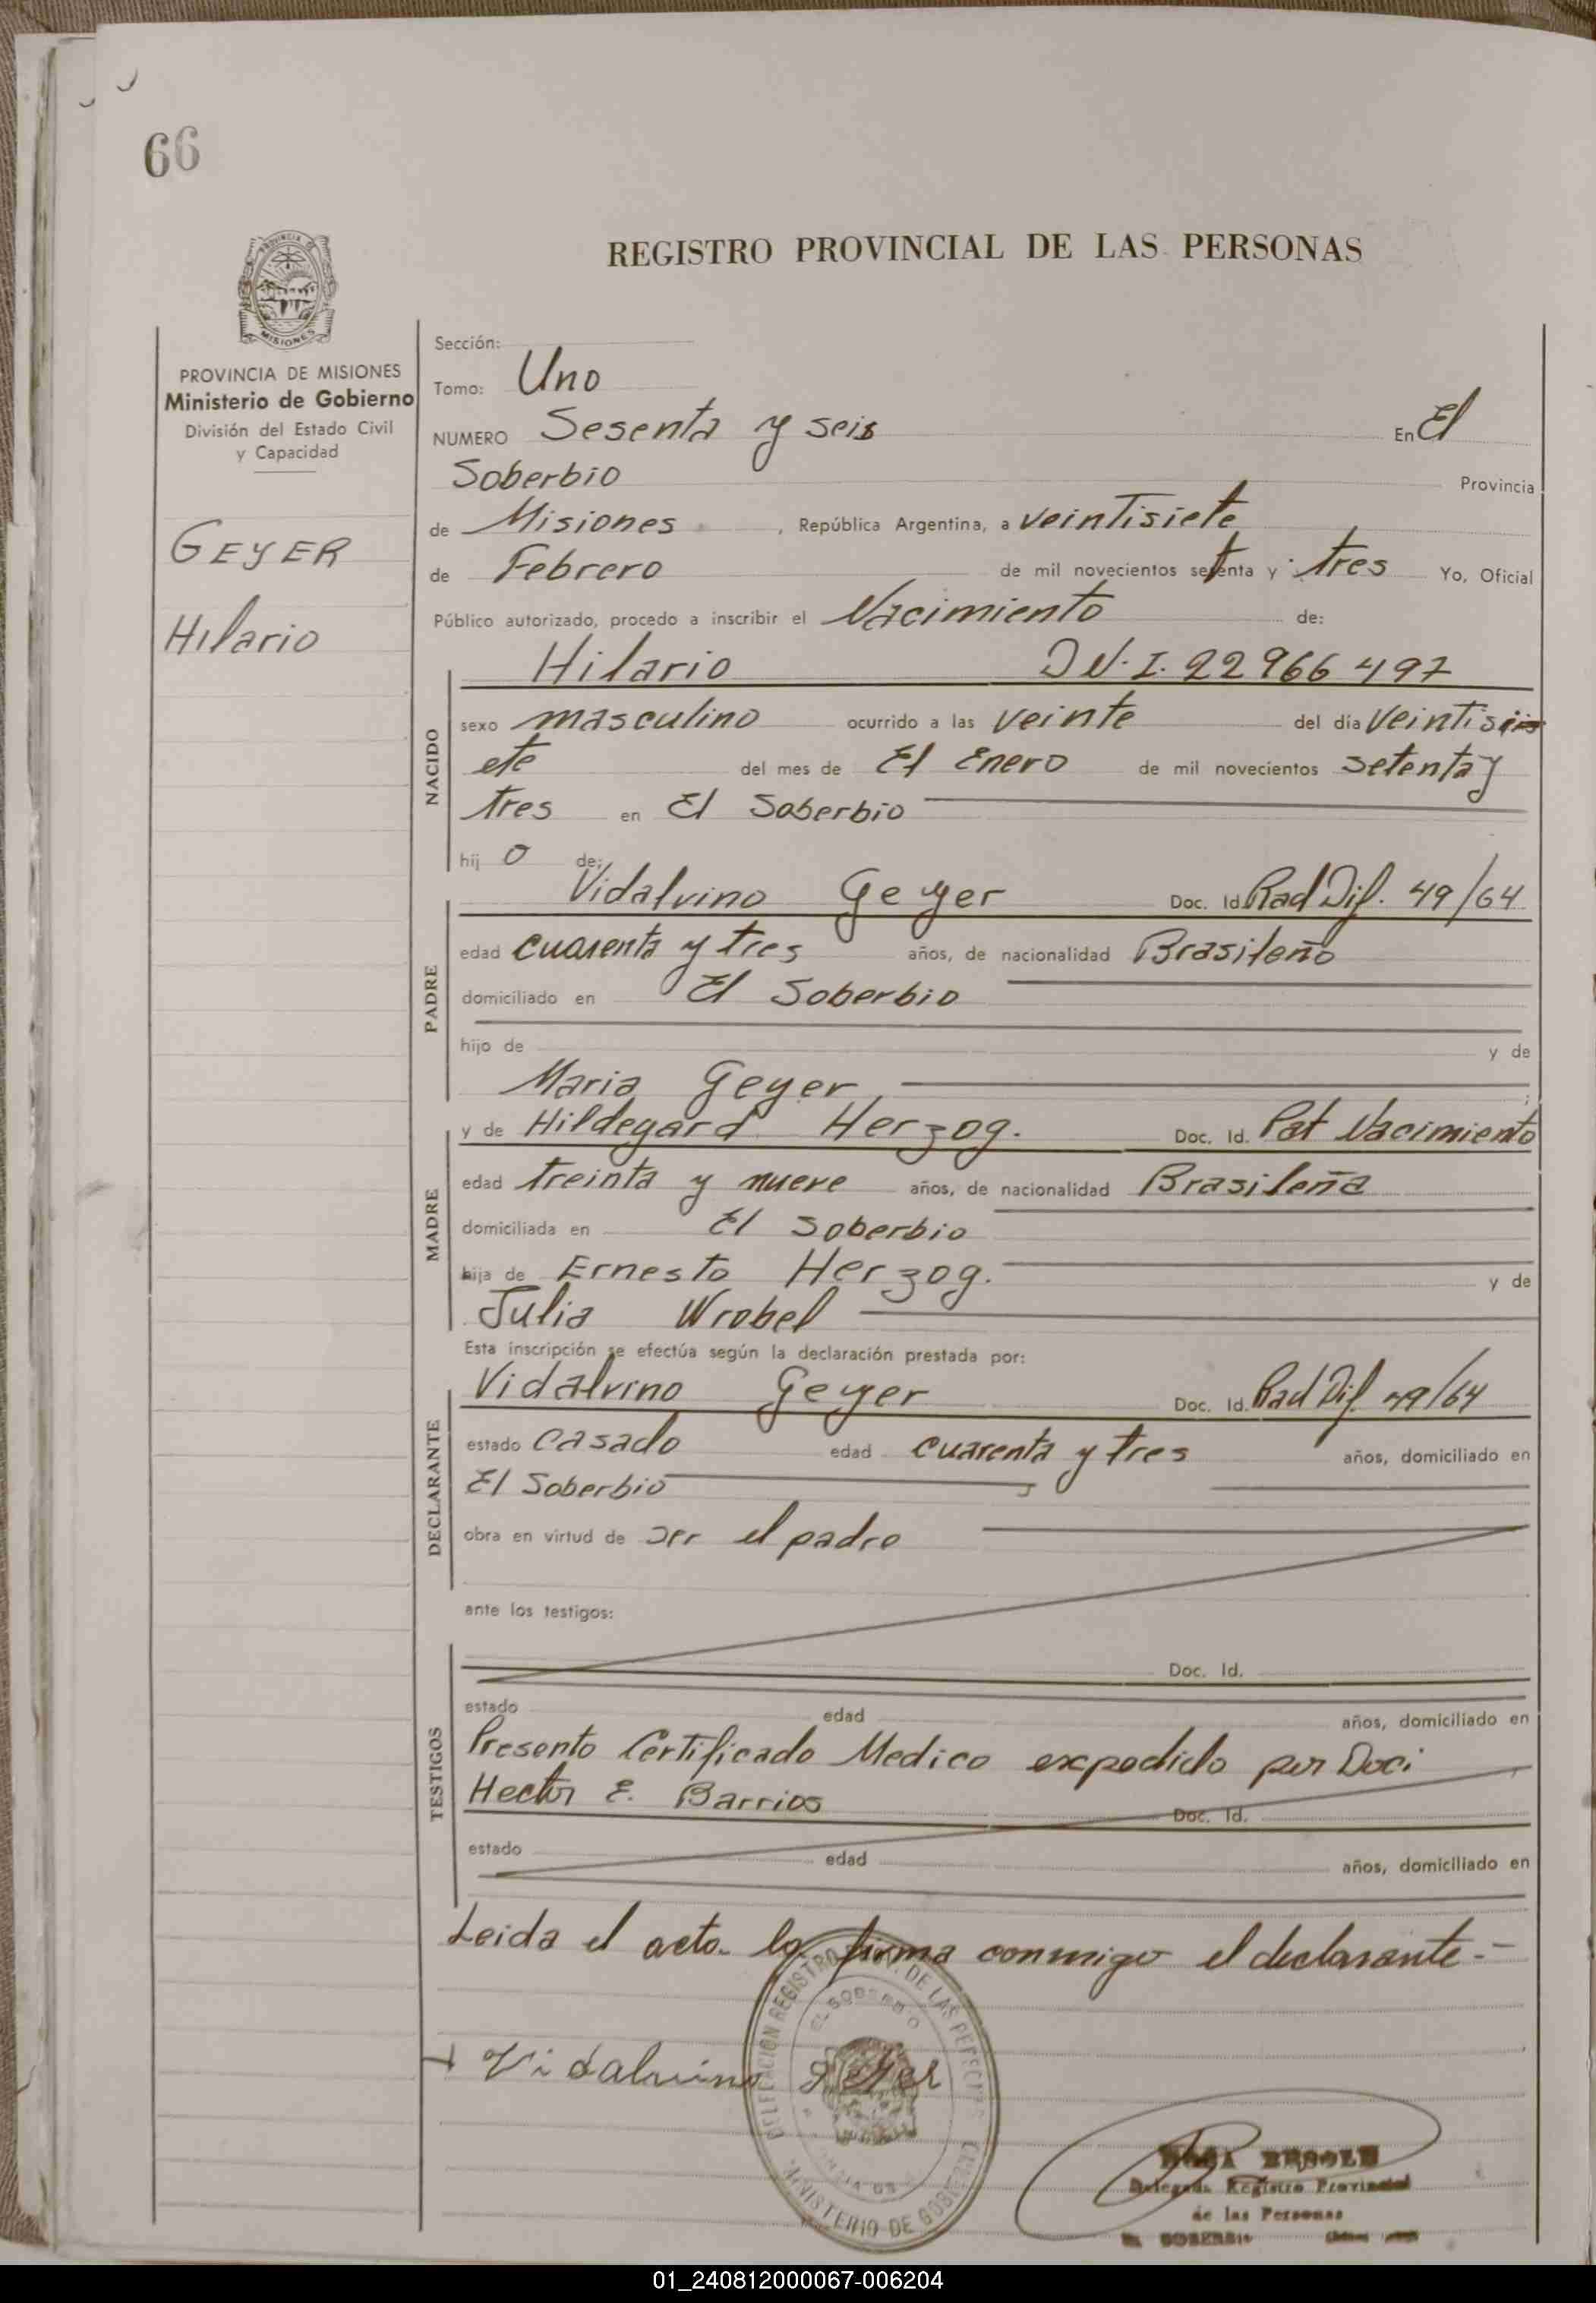 66
REGISTRO PROVINCIAL DE LAS PERSONAS
MISIONES
PROVINCIA DE MISIONES
Ministerio de Gobierno
División del Estado Civil
y Capacidad
GEYER
Hilario
Sección:
Tomo: Uno
NUMERO Sesenta y seis En El
Soberbio Provincia
de Misiones , República Argentina, a veintisiete
de Febrero de mil novecientos setenta y tres Yo, Oficial
Público autorizado, procedo a inscribir el Nacimiento de:
NACIDO
Hilario D.N.I. 22966497
sexo masculino ocurrido a las veinte del día veintisi
ete del mes de El Enero de mil novecientos setenta y
tres en El Soberbio
hij o de:
PADRE
Vidalvino Geyer Doc. Id. Rad Dif. 49/64
edad cuarenta y tres años, de nacionalidad Brasileño
domiciliado en El Soberbio
hijo de y de
Maria Geyer ;
MADRE
y de Hildegard Herzog. Doc. Id. Pat Nacimiento
edad treinta y nueve años, de nacionalidad Brasileña
domiciliada en El Soberbio
hija de Ernesto Herzog. y de
Julia Wrobel
Esta inscripción se efectúa según la declaración prestada por:
DECLARANTE
Vidalvino Geyer Doc. Id. Rad Dif. 49/64
estado casado edad cuarenta y tres años, domiciliado en
El Soberbio
obra en virtud de ser el padre
ante los testigos:
TESTIGOS
Doc. Id.
estado edad años, domiciliado en
Presento Certificado Medico expedido por
Hector E. Barrios Doc. Id.
estado edad años, domiciliado en
Leida el acta la firma conmigo el declarante.-
Vidalvino Geyer
DELEGACION REGISTRO DE LAS PERSONAS
EL SOBERBIO
MINISTERIO DE GOBIERNO
Delegada Registro Provincial
de las Personas
SOBERBIO
01_240812000067-006204